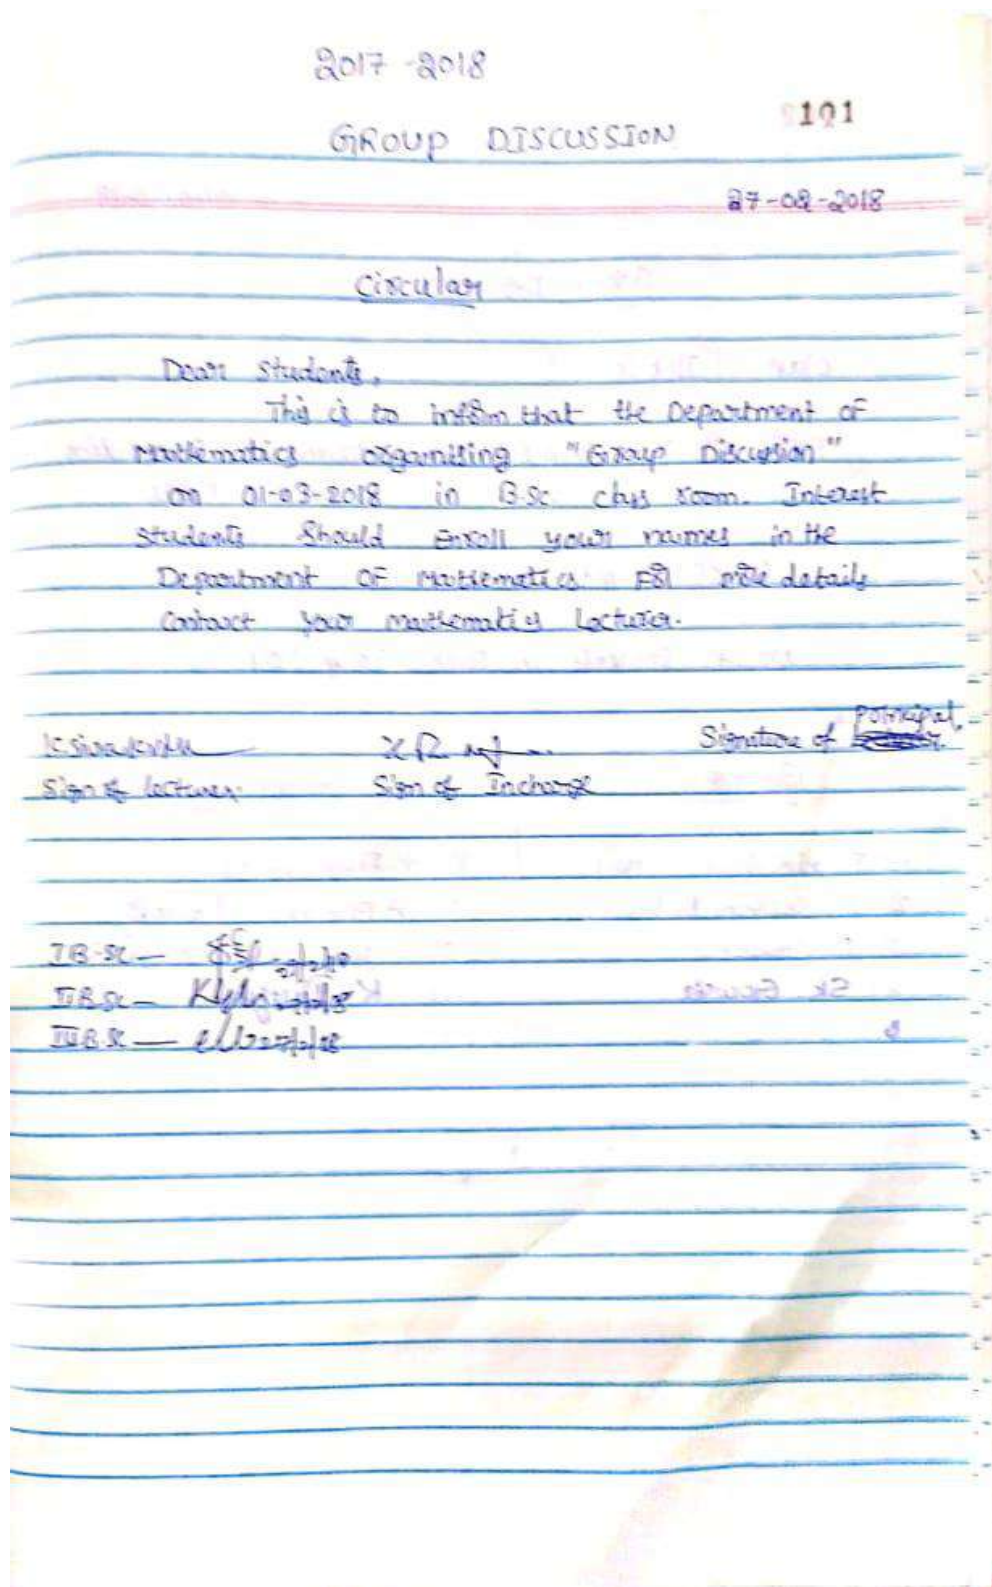 2017-2018
101
GROUP DISCUSSION
27-02-2018
Circular
Dear Students,
This is to inform that the Department of
Mathematics organising "Group Discussion"
on 01-03-2018 in B.Sc class room. Interest
Students Should Enroll your names in the
Department OF Mathematics. For more details
Contact your mathematics Lecturer.
Principal,
Signature of
Sign of lecturer.
Sign of Incharge
I B.Sc —
II B.Sc —
III B.Sc — 27/2/18